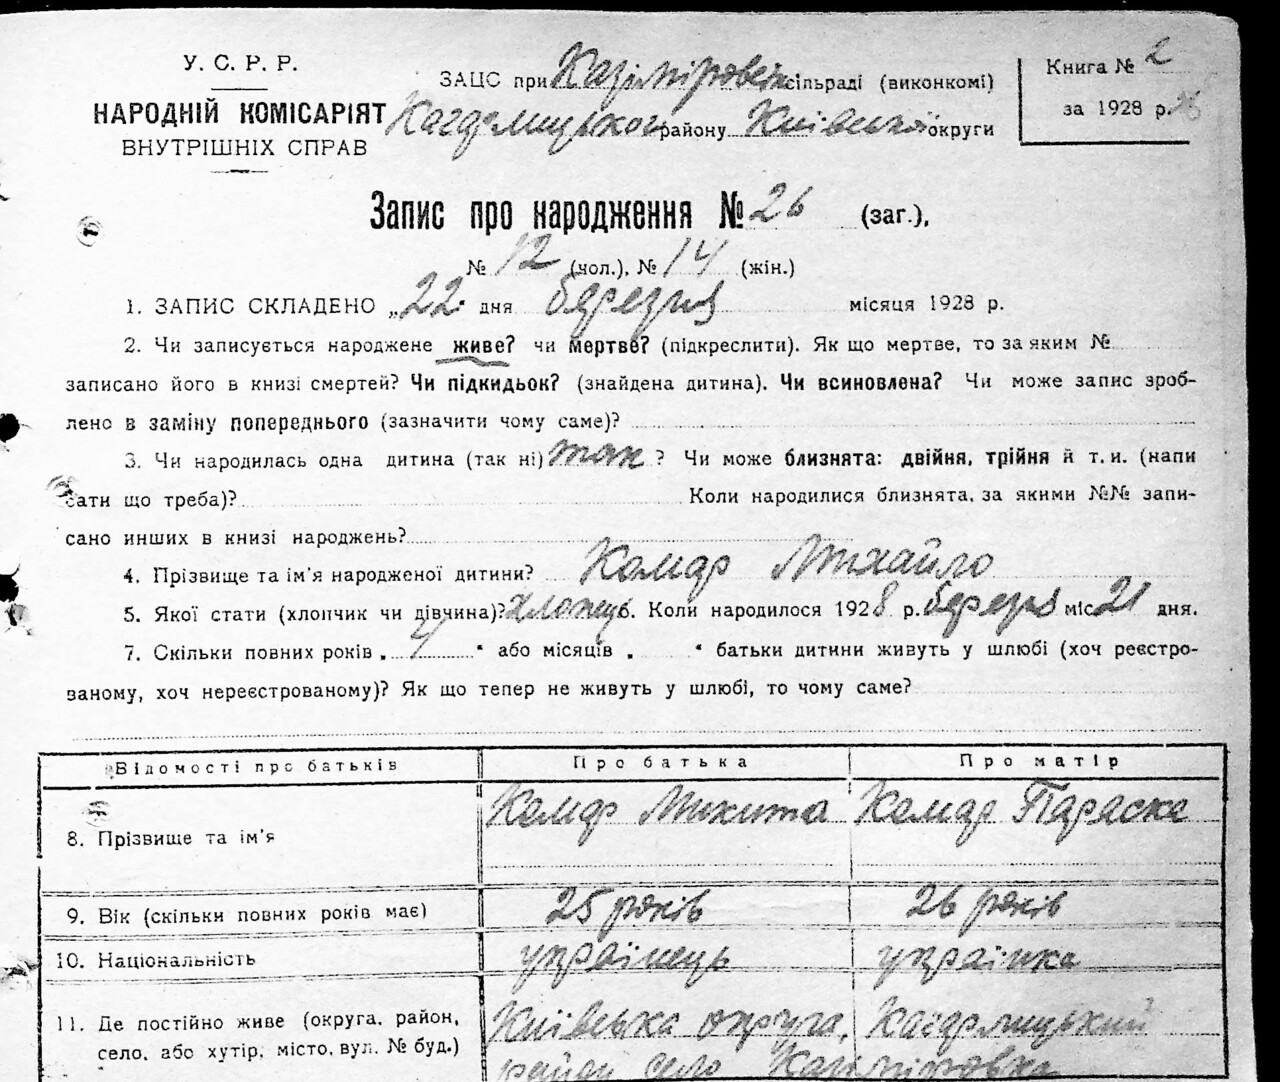 У. С. Р. Р.
НАРОДНІЙ КОМІСАРІЯТ
ВНУТРІШНІХ СПРАВ
ЗАЦС при Казіміровск сільраді (виконкомі)
Кагарлицького району Київської округи
Книга № 2
за 1928 р.
Запис про народження № 26 (заг.),
№ 12 (чол.), № 14 (жін.)
1. ЗАПИС СКЛАДЕНО „22" дня березня місяця 1928 р.
2. Чи записується народжене живе? чи мертве? (підкреслити). Як що мертве, то за яким №
записано його в книзі смертей? Чи підкидьок? (знайдена дитина). Чи всиновлена? Чи може запис зроб-
лено в заміну попереднього (зазначити чому саме)?
3. Чи народилась одна дитина (так ні) так? Чи може близнята: двійня, трійня й т. и. (напи
сати що треба)? Коли народилися близнята, за якими №№ запи-
сано инших в книзі народжень?
4. Прізвище та ім'я народженої дитини? Комар Михайло
5. Якої стати (хлопчик чи дівчина)? хлопець. Коли народилося 1928 р. березня міс 21 дня.
7. Скільки повних років „ " або місяців „ " батьки дитини живуть у шлюбі (хоч реєстро-
ваному, хоч нереєстрованому)? Як що тепер не живуть у шлюбі, то чому саме?
Відомості про батьків Про батька Про матір
8. Прізвище та ім'я Комар Микита Комар Параска
9. Вік (скільки повних років має) 25 років 26 років
10. Національність українець українка
11. Де постійно живе (округа, район, Київська округа, Кагарлицький
село, або хутір, місто, вул. № буд.) район село Казіміровка